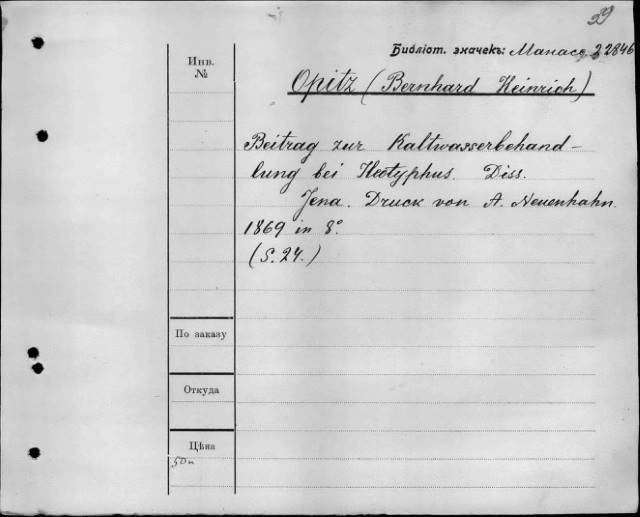 39
Библіот. значекъ: Манасс 2846
Инв.
№
Opitz (Bernhard Heinrich)
Beitrag zur Kaltwasserbehand-
lung bei Ileotyphus. Diss.
Jena. Druck von A. Neuenhahn.
1869 in 8°.
(S. 24.)
По заказу
Откуда
Цѣна
50к